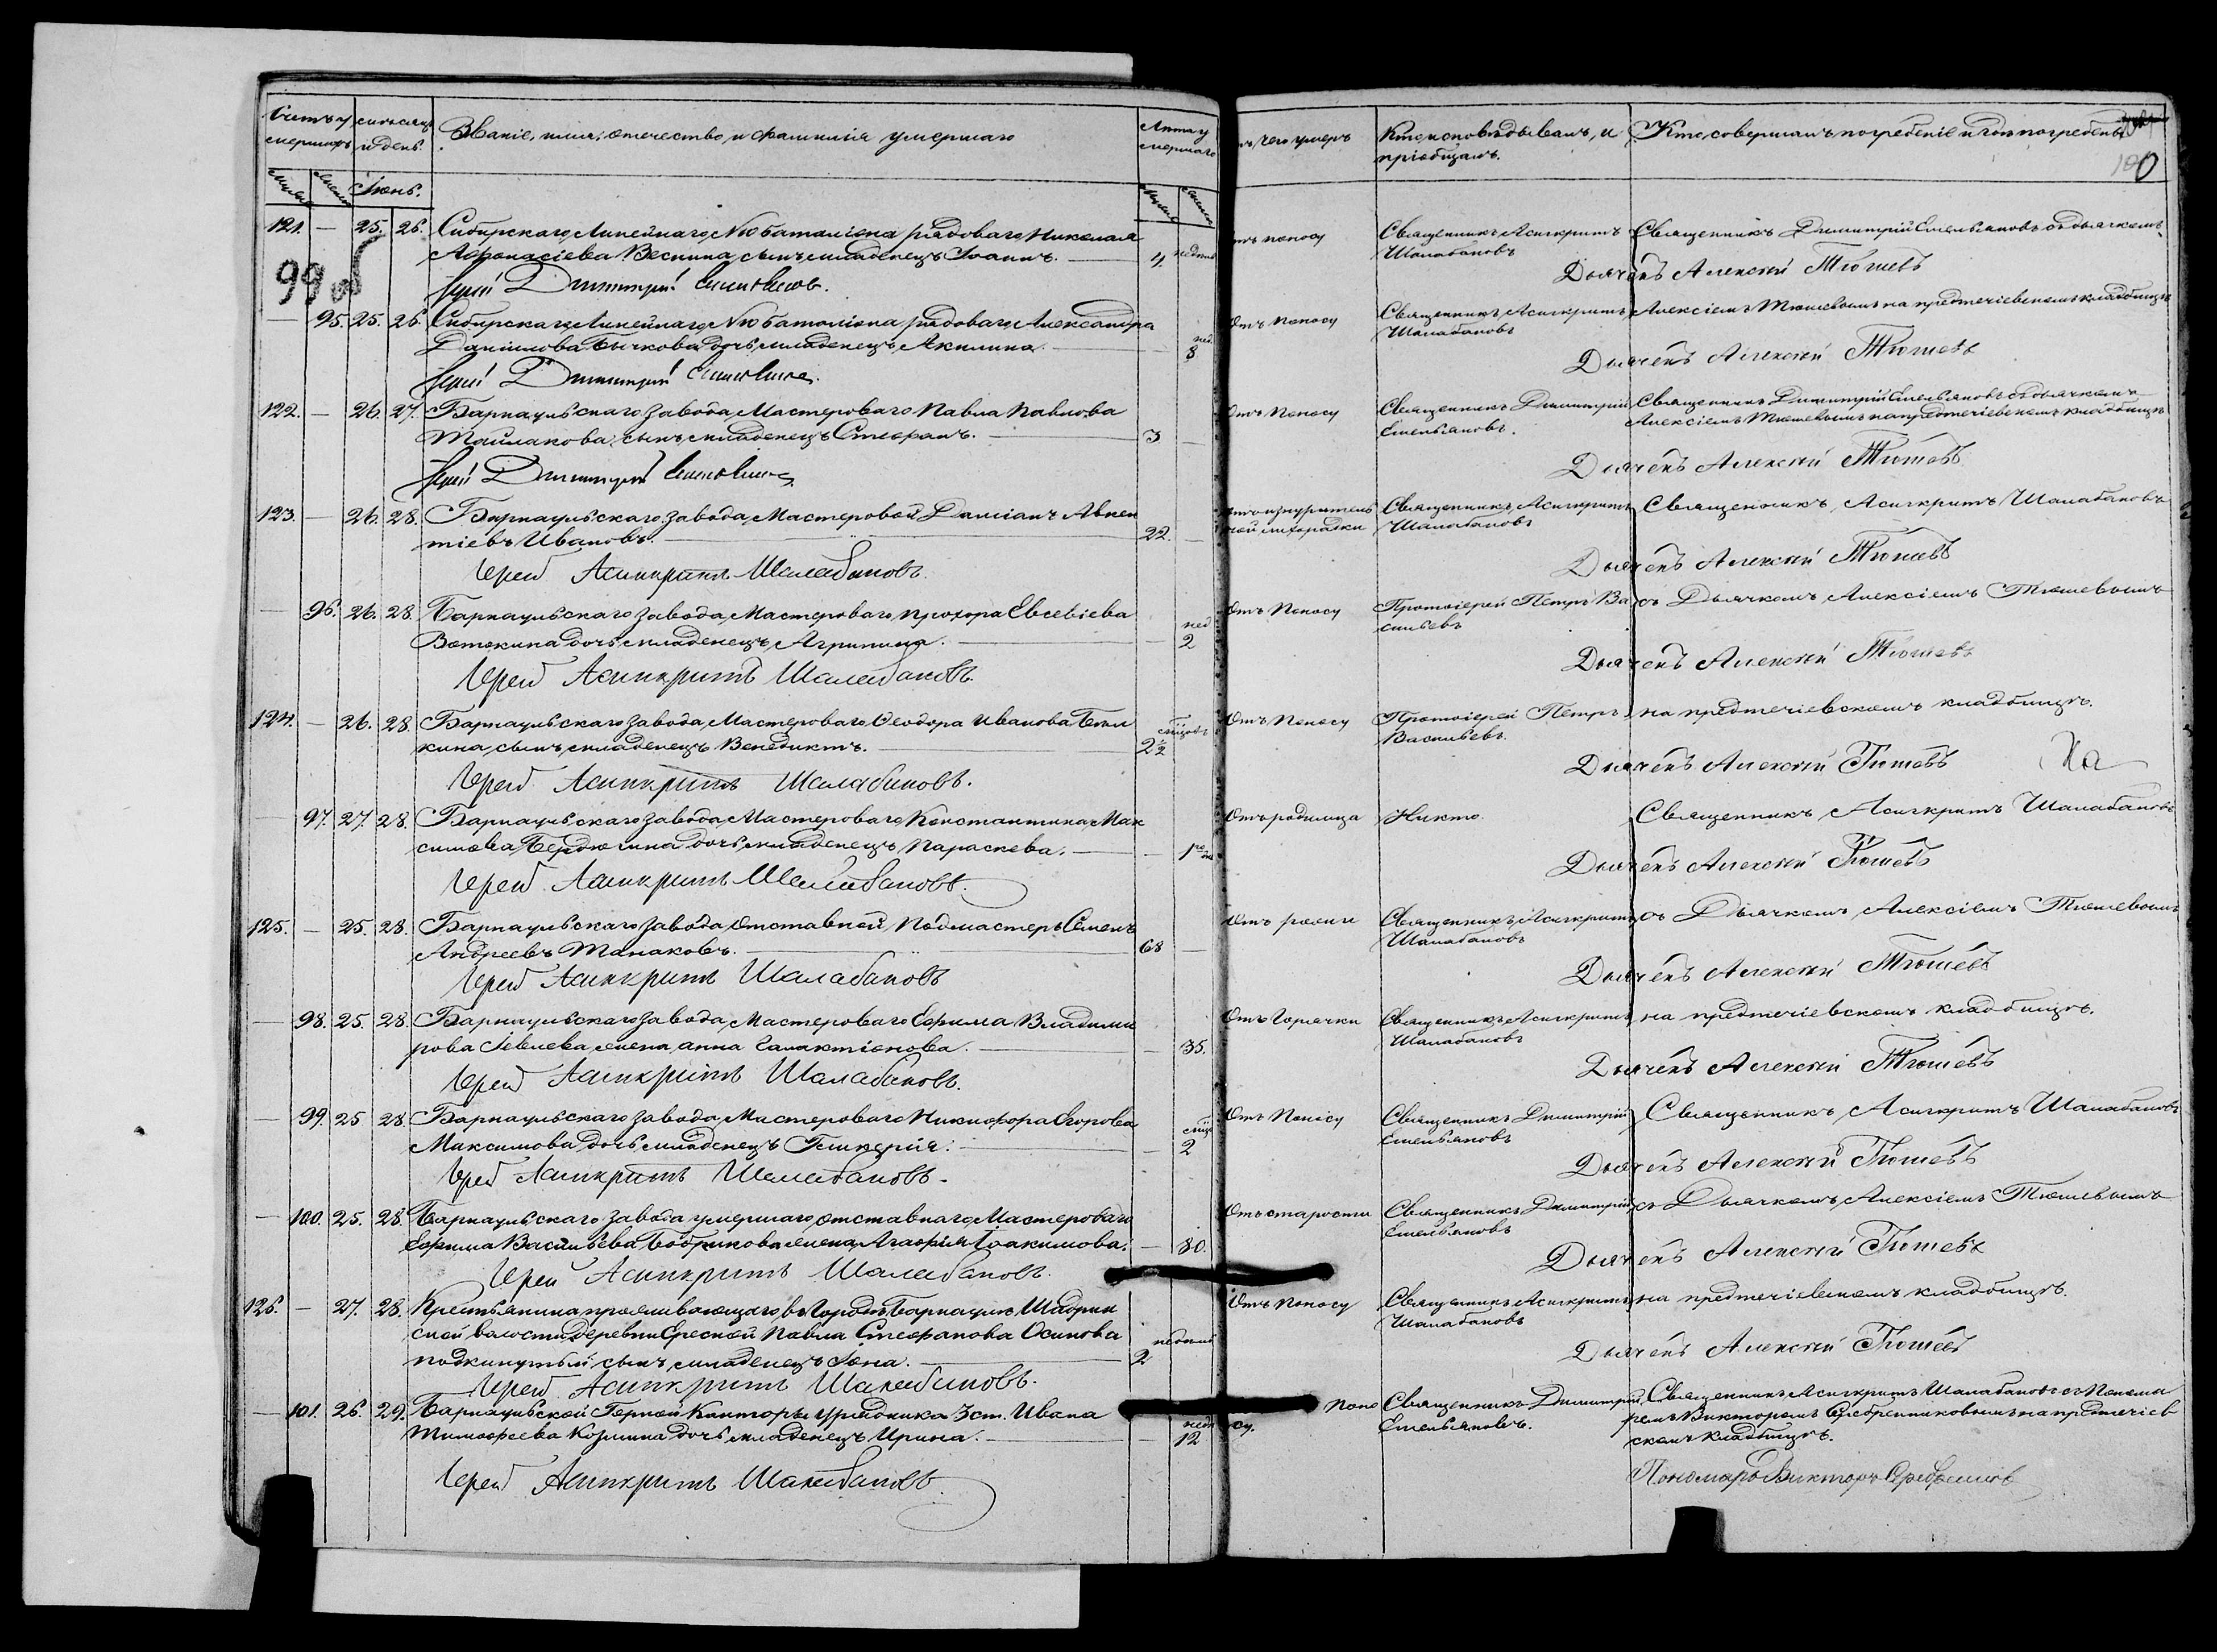 Счетъ умершихъ
мѣсяцъ и день.
Званіе, имя, отечество, и фамилія умершаго
Лѣта умершаго
Отъ чего умеръ
Кто исповѣдывалъ, и пріобщалъ.
Кто совершалъ погребеніе и гдѣ погребены
100
Іюнь.
99 об
121. — 25. 26. Сибирскаго Линейнаго №10 баталіона рядоваго Николая
Афонасіева Веснина сынъ младенецъ Іоаннъ. 4 недѣль
отъ поносу
Священникъ Асигкритъ
Шалабановъ
Священникъ Димитрій Емельяновъ съ дьячкомъ
Іерей Димитрій Емельяновъ.
Дьячекъ Алексѣй Тюшевъ
— 95. 25. 26. Сибирскаго Линейнаго №10 баталіона рядоваго Александра
Данилова Бычкова дочь младенецъ Акилина. — нед 8
Отъ Поносу
Священникъ Асигкритъ
Шалабановъ
Алексіемъ Тюшевымъ на предтечіевскомъ кладбищѣ
Іерей Димитрій Емельяновъ.
Дьячекъ Алексѣй Тюшевъ
122. — 26. 27. Барнаульскаго завода Мастероваго Павла Павлова
сынъ младенецъ Стефанъ. 3 —
Отъ Поносу
Священникъ Димитрій
Емельяновъ.
Священникъ Димитрій Емельяновъ съ дьячкомъ
Алексіемъ Тюшевымъ на предтечіевскомъ кладбищѣ
Іерей Димитрій Емельяновъ
Дьячекъ Алексѣй Тюшевъ
123. — 26. 28. Барнаульскаго завода Мастеровой Даміанъ Авкен
тіевъ Ивановъ. 22. —
отъ изнурител
ной лихорадки
Священникъ Асигкритъ
Шалабановъ
Священникъ Асигкритъ Шалабановъ
Іерей Асинкритъ Шалабановъ.
Дьячекъ Алексѣй Тюшевъ
— 96. 26. 28. Барнаульскаго завода Мастероваго Прохора Евсевіева
Вотекина дочь младенецъ Агрипина. — нед 2
Отъ Поносу
Протоіерей Петръ Ва
сильевъ
съ Дьячкомъ Алексіемъ Тюшевымъ
Іерей Асинкритъ Шалабановъ.
Дьячекъ Алексѣй Тюшевъ
124. — 26. 28. Барнаульскаго завода Мастероваго Ѳеодора Иванова
кина сынъ младенецъ Венедиктъ. 2½
Отъ Поносу
Протоіерей Петръ
Васильевъ.
на предтечіевскомъ кладбищѣ.
Іерей Асинкритъ Шалабановъ.
Дьячекъ Алексѣй Тюшевъ
На
97. 27. 28. Барнаульскаго завода Мастероваго Константина Мак
симова Бердюгина дочь младенецъ Параскева. —
Отъ родимца
Никто
Священникъ Асигкритъ Шалабановъ
Іерей Асинкритъ Шалабановъ.
Дьячекъ Алексѣй Тюшевъ
125. — 25. 28. Барнаульскаго завода отставной Подмастеръ Семенъ
Андреевъ Танаковъ. 68 —
Священникъ Асигкритъ
Шалабановъ
съ Дьячкомъ Алексіемъ Тюшевымъ
Іерей Асинкритъ Шалабановъ
Дьячекъ Алексѣй Тюшевъ
— 98. 25. 28. Барнаульскаго завода Мастероваго Ефима Владими
рова жена анна Галактіонова. — 35.
Отъ Горячки
Священникъ Асигкритъ
Шалабановъ
на предтечіевскомъ кладбищѣ.
Іерей Асинкритъ Шалабановъ.
Дьячекъ Алексѣй Тюшевъ
— 99. 25 28. Барнаульскаго завода Мастероваго Никифора Егорова
Максимова дочь младенецъ Гликерія. — 2
Отъ Поносу
Священникъ Димитрій
Емельяновъ
Священникъ Асигкритъ Шалабановъ
Іерей Асинкритъ Шалабановъ.
Дьячекъ Алексѣй Тюшевъ
— 100. 25. 28. Барнаульскаго завода умершаго отставнаго Мастероваго
Ефима Васильева Бобрикова жена Агафія Іоакимова. — 80.
Отъ старости
Священникъ Димитрій
Емельяновъ
съ Дьячкомъ Алексіемъ Тюшевымъ
Іерей Асинкритъ Шалабановъ.
Дьячекъ Алексѣй Тюшевъ
126. — 27. 28. Крестьянина проживающаго въ Городѣ Барнаулѣ Шадрин
ской волости Деревни Ересной Павла Стефанова Осипова
подкинутый сынъ младенецъ Іона. 2 недѣль
Отъ Поносу
Священникъ Асигкритъ
Шалабановъ
на предтечіевскомъ кладбищѣ.
Іерей Асинкритъ Шалабановъ.
Дьячекъ Алексѣй Тюшевъ
— 101. 26. 29. Барнаульской Горной Канторы урядника 3 ст. Ивана
Тимофеева Козмина дочь младенецъ Ирина. — нед 12
Поно
су.
Священникъ Димитрій
Емельяновъ.
Священникъ Асигкритъ Шалабановъ съ Понома
ремъ Викторомъ Серебренниковымъ на предтечіев
скомъ кладбищѣ.
Іерей Асинкритъ Шалабановъ.
Пономарь Викторъ